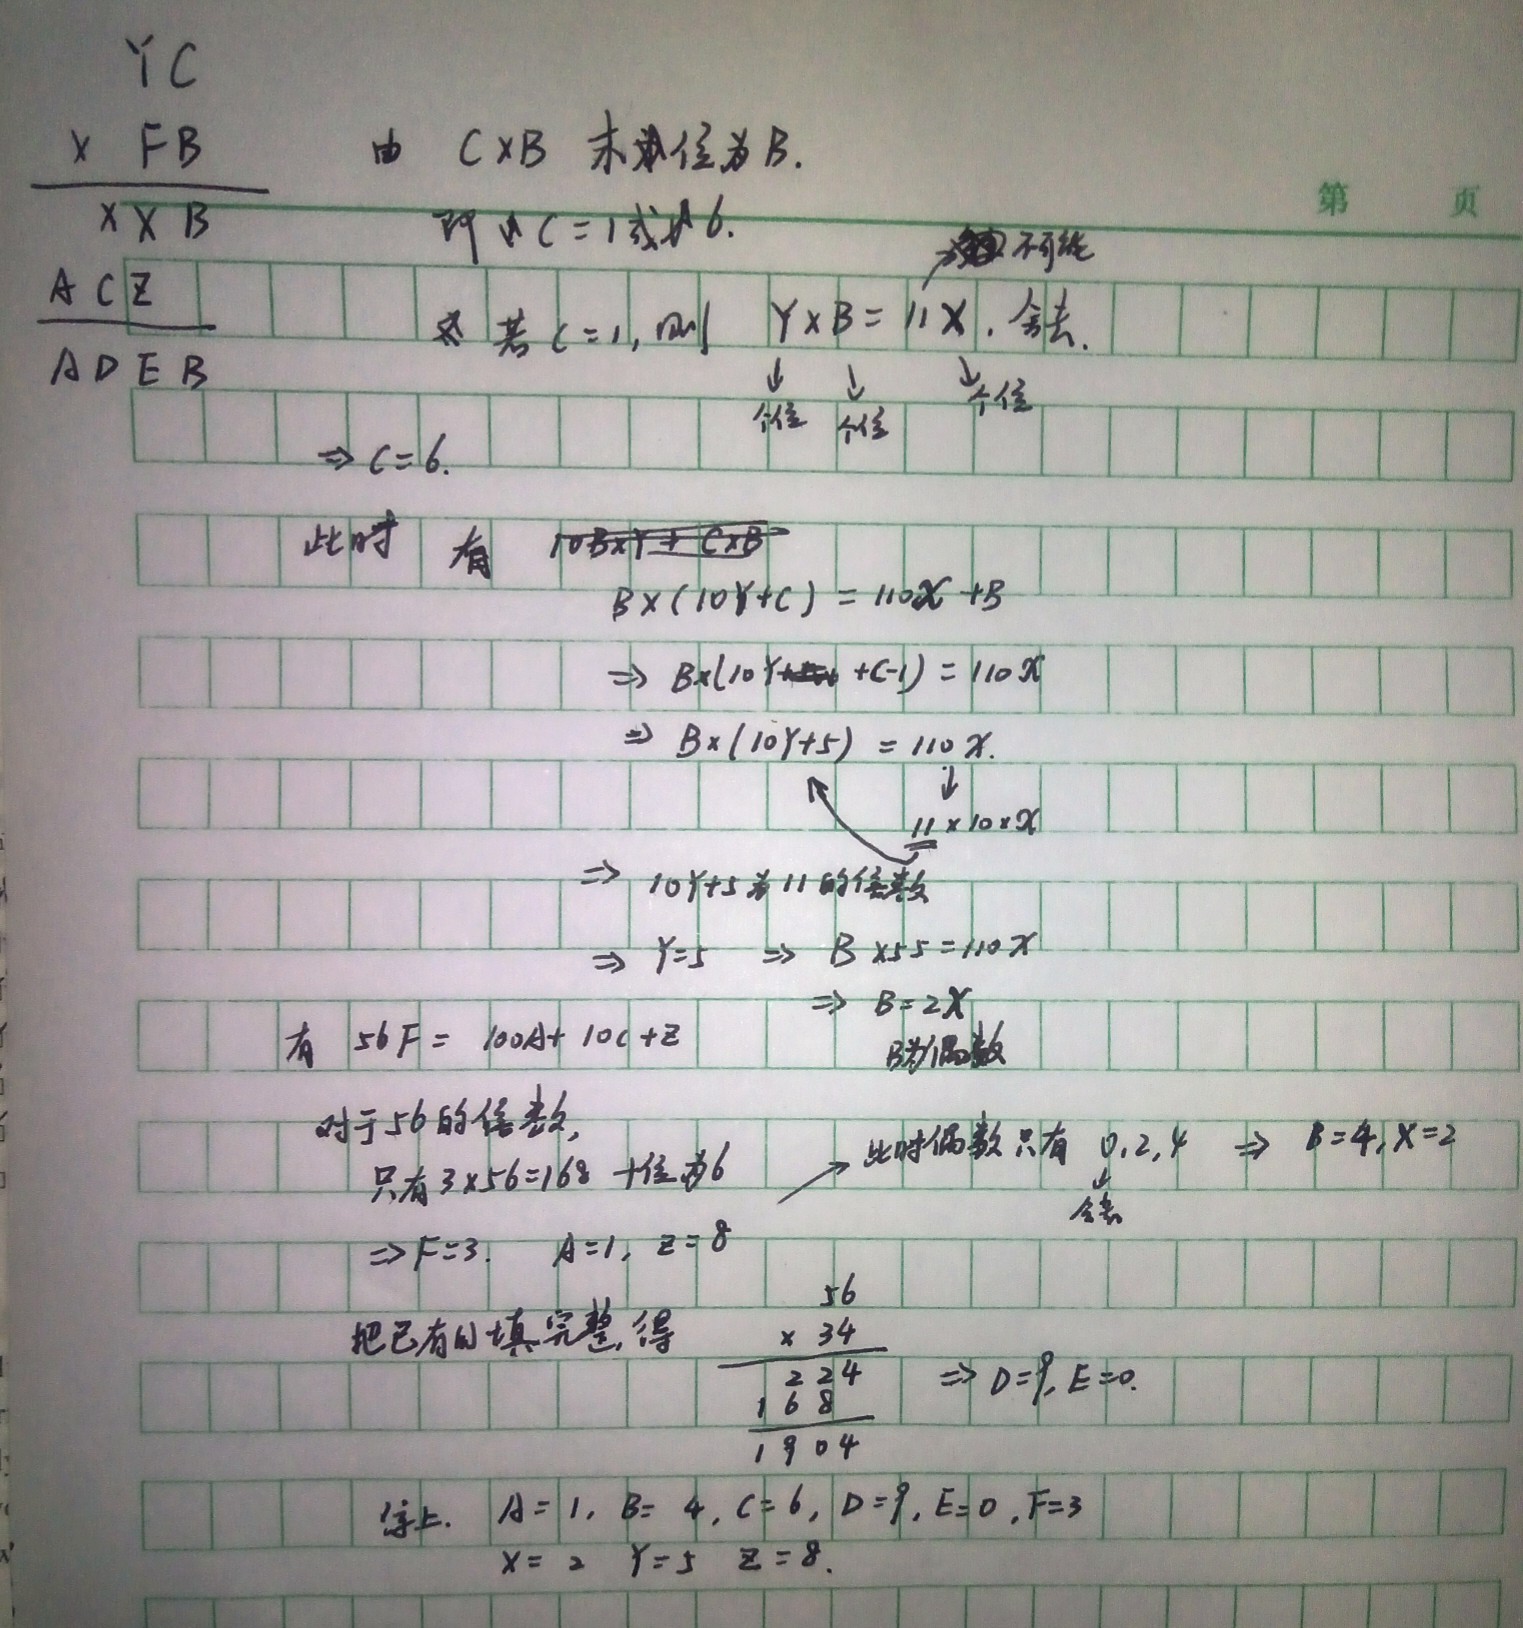 YC
× FB
XXB
ACZ
ADEB
由 C×B 末位为B.
所以C=1或6.
不可能
若C=1,则 Y×B=11X.舍去.
个位 个位 个位
⇒ C=6.
此时 有
B×(10Y+C) = 110X+B
⇒ B×(10Y +C-1) = 110X
⇒ B×(10Y+5) = 110X.
11×10×X
⇒ 10Y+5为11的倍数
⇒ Y=5 ⇒ B×55=110X
⇒ B=2X
B为偶数
有 56F = 100A+10C+Z
对于56的倍数,
只有3×56=168 十位为6
⇒F=3. A=1, Z=8
此时偶数只有 0,2,4 ⇒ B=4,X=2
舍去
把已有的填完整,得
56
× 34
224
168
1904
⇒ D=9, E=0.
综上. A=1, B=4, C=6, D=9, E=0, F=3
X=2 Y=5 Z=8.
第 页